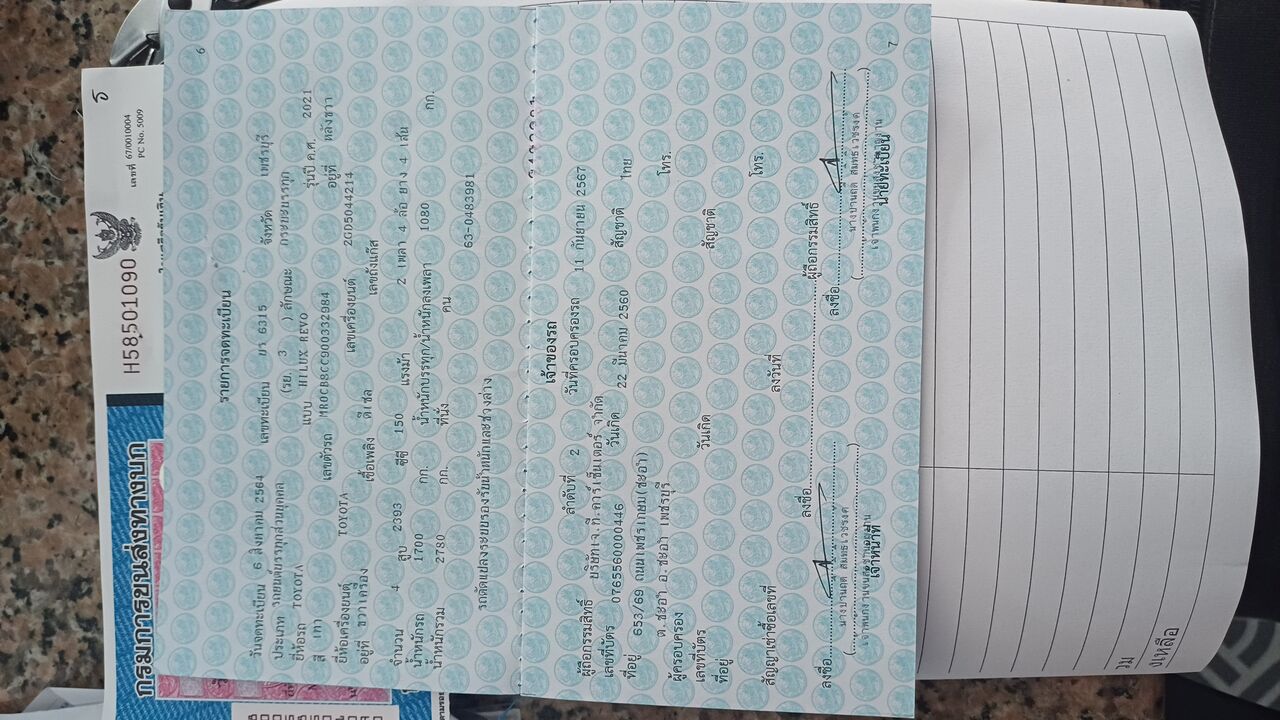 H58501090
เลขที่ 67/0010004
PC No. 5009
กรมการขนส่งทางบก
6
รายการจดทะเบียน
วันจดทะเบียน 6 สิงหาคม 2564 เลขทะเบียน บร 6315 จังหวัด เพชรบุรี
ประเภท รถยนต์บรรทุกส่วนบุคคล (รย. 3 ) ลักษณะ กระบะบรรทุก
ยี่ห้อรถ TOYOTA แบบ HILUX REVO รุ่นปี ค.ศ. 2021
สี เทา เลขตัวรถ MR0CB8CC900332984 อยู่ที่ หลังขวา
ยี่ห้อเครื่องยนต์ TOYOTA เลขเครื่องยนต์ 2GD5044214
อยู่ที่ ขวาเครื่อง เชื้อเพลิง ดีเซล เลขถังแก๊ส
จำนวน 4 สูบ 2393 ซีซี 150 แรงม้า 2 เพลา 4 ล้อ ยาง 4 เส้น
น้ำหนักรถ 1700 กก. น้ำหนักบรรทุก/น้ำหนักลงเพลา 1080 กก.
น้ำหนักรวม 2780 กก. ที่นั่ง คน 63-0483981
รถดัดแปลงระบบรองรับน้ำหนักและช่วงล่าง
7
เจ้าของรถ
ลำดับที่ 2 วันที่ครอบครองรถ 11 กันยายน 2567
ผู้ถือกรรมสิทธิ์ บริษัทเจ.ที.คาร์เซ็นเตอร์ จำกัด
เลขที่บัตร 0765560000446 วันเกิด 22 มีนาคม 2560 สัญชาติ ไทย
ที่อยู่ 653/69 ถนนเพชรเกษม(ชะอำ)
ต.ชะอำ อ.ชะอำ เพชรบุรี โทร.
ผู้ครอบครอง
เลขที่บัตร วันเกิด สัญชาติ
ที่อยู่
โทร.
สัญญาเช่าซื้อเลขที่ ลงวันที่
ลงชื่อ ผู้ถือกรรมสิทธิ์
ลงชื่อ ลงชื่อ
เจ้าหน้าที่ นายทะเบียน